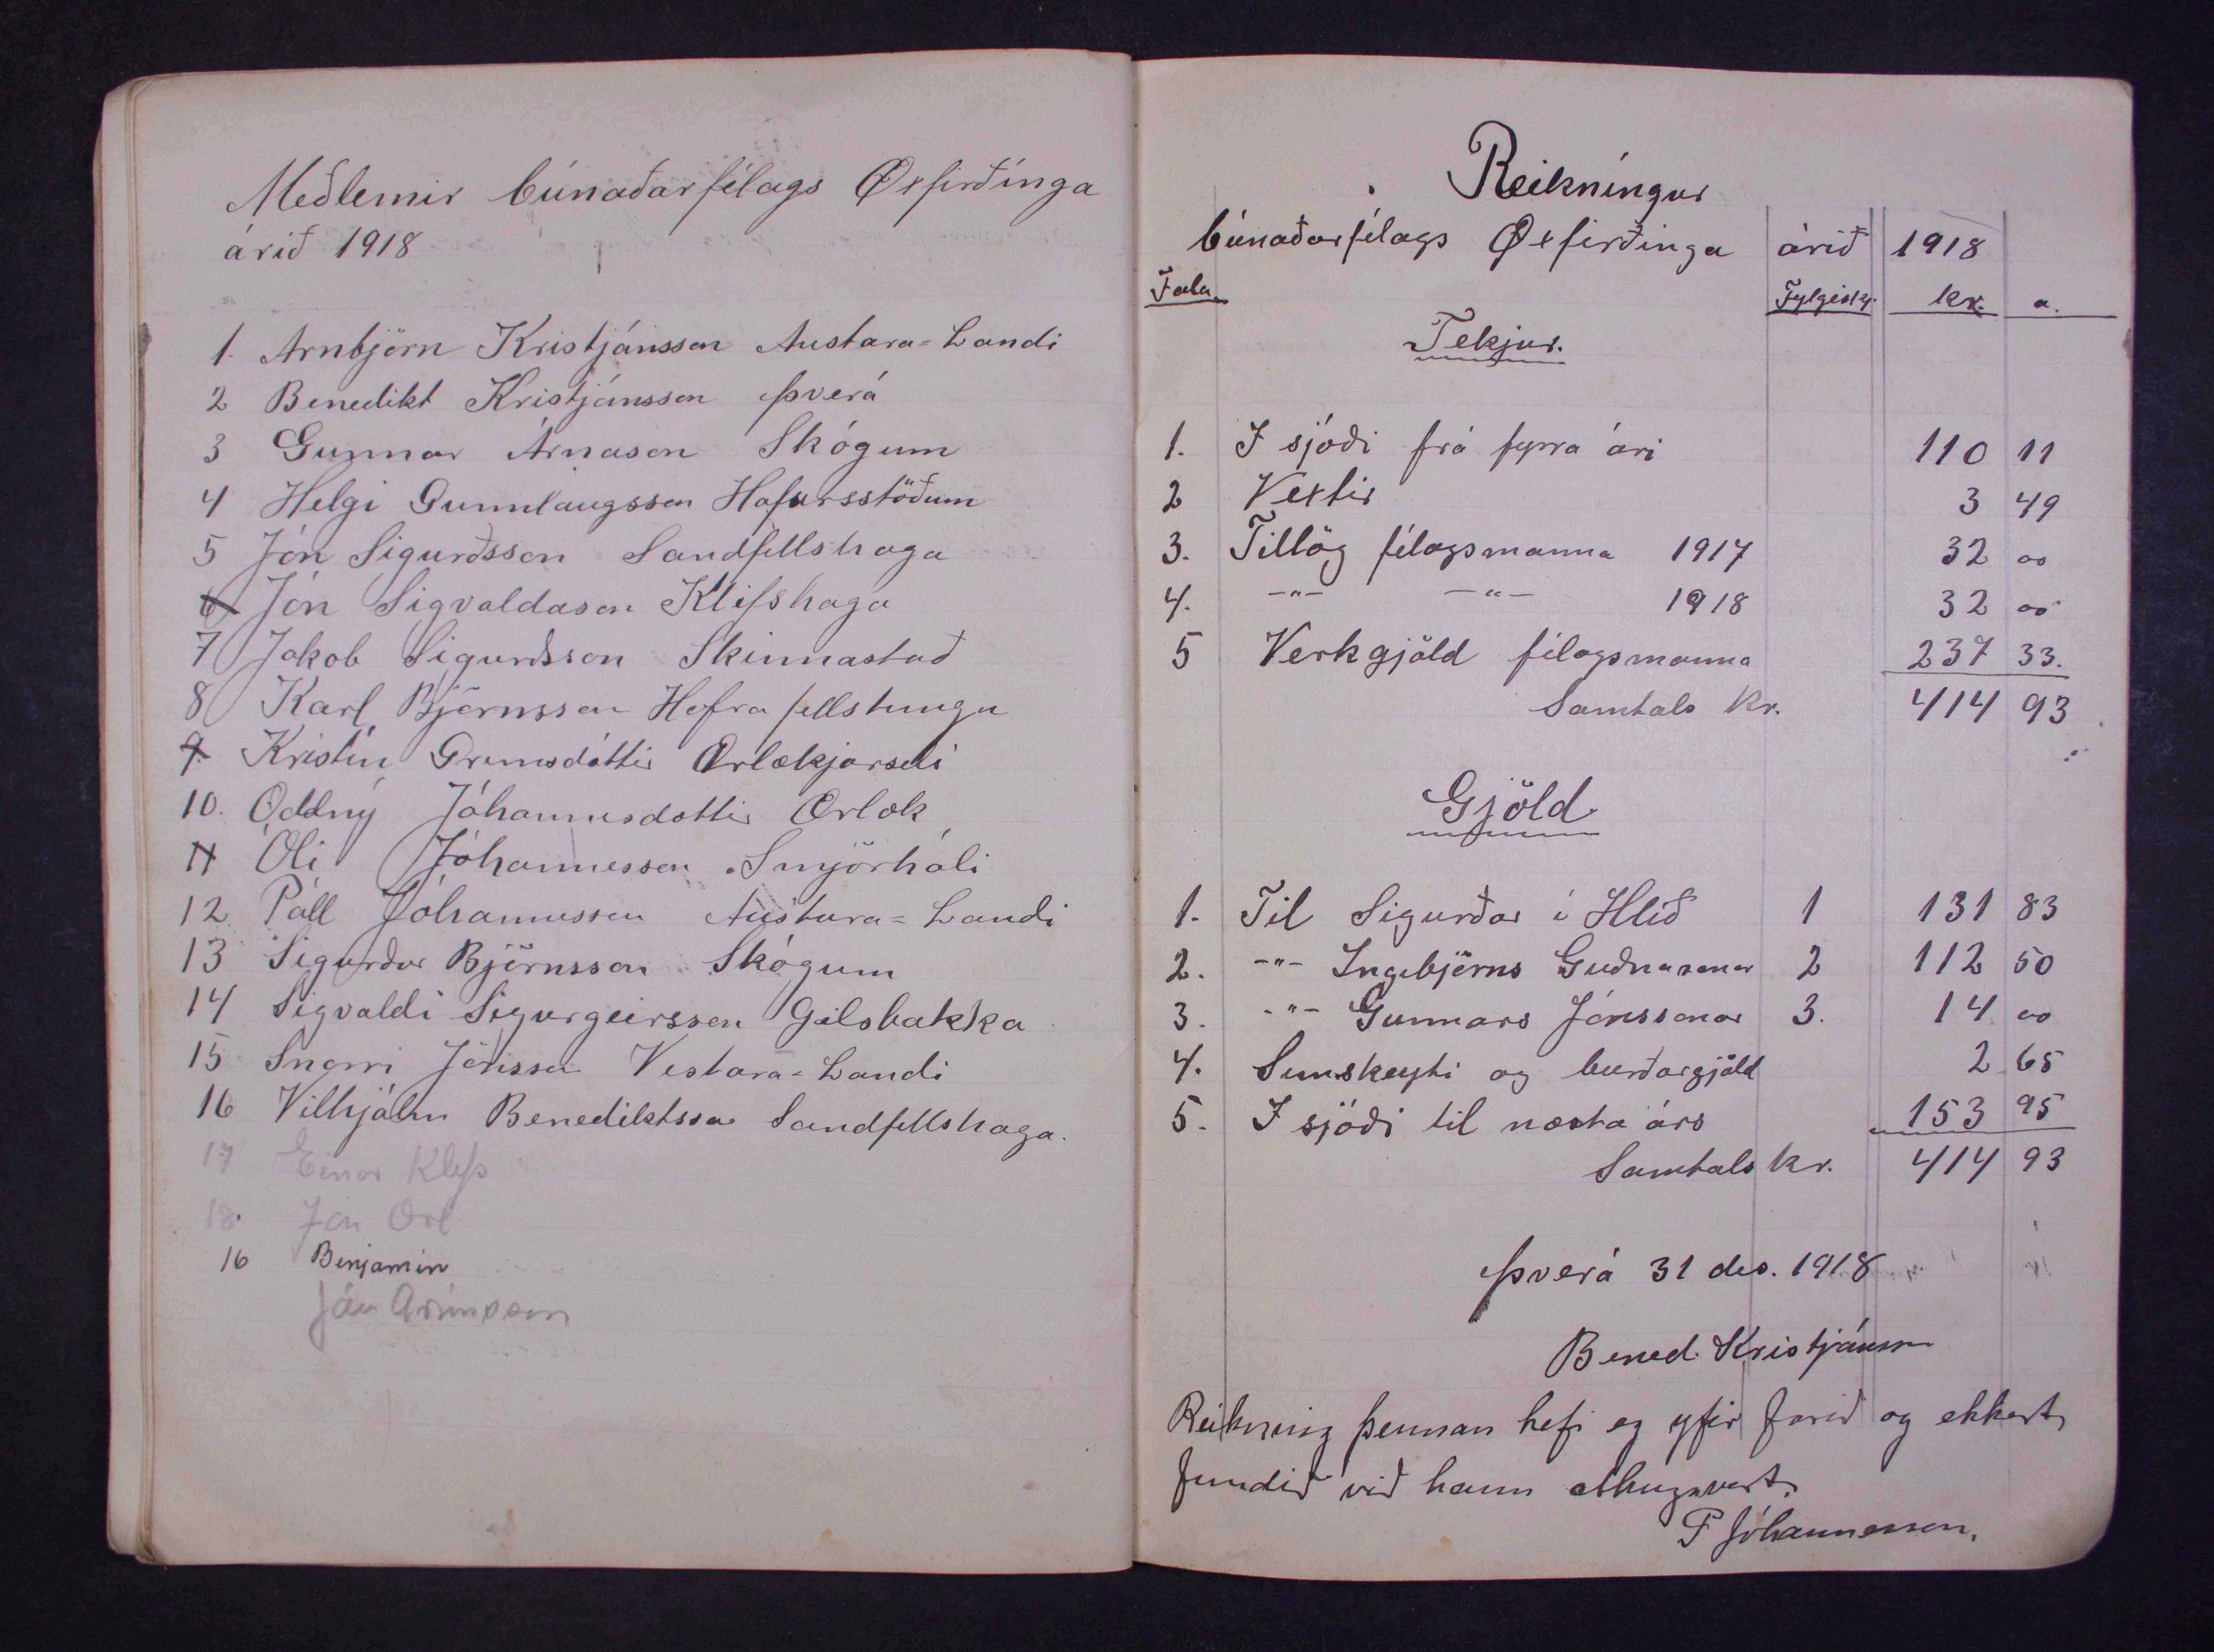 Meðlemir búnaðarfélags Øxfirðínga
árið 1918
1. Arnbjörn Kristjánsson Austara-Landi
2 Benedikt Kristjánsson Þverá
3 Gunnar Árnason Skógum
4 Helgi Gunnlaugsson Hafursstöðum
5 Jón Sigurðsson Sandfellshaga
6 Jón Sigvaldason Klifshaga
7 Jakob Sigurðsson Skinnastað
8 Karl Björnsson Hafrafellstungu
9. Kristín Grímsdóttir Ærlækjarseli
10. Oddný Jóhannesdottir Ærlæk
11 Óli Jóhannesson Smjörhóli
12 Páll Jóhannesson Austara-Landi
13 Sigurður Björnsson Skógum
14 Sigvaldi Sigurgeirsson Gilsbakka
15 Snorri Jónsson Vestara-Landi
16 Vilhjálm Benediktsson Sandfellshaga.
17 Einar
18. Jón Ærl
16 Benjamín
Jón
Reikníngur
búnaðarfélags Øxfirðinga árið 1918
Tala. Fylgiskj. kr. a.
Tekjur.
1. I sjóði frá fyrra ári 110 11
2 Vextir 3 49
3. Tillög félagsmanna 1917 32 00
4. -"- -"- 1918 32 00
5 Verkgjöld félagsmanna 237 33.
Samtals kr. 414 93
Gjöld
1. Til Sigurðar í Hlíð 1 131 83
2. -"- Ingibjörns Guðnasonar 2 112 50
3. -"- Gunnars Jónssonar 3. 14 00
4. Símskeyti og burðargjöld 2 65
5. I sjóði til næsta árs 153 95
Samtals kr. 414 93
Þverá 31 des. 1918
Bened. Kristjánsson
Reikning þennan hefi eg yfir farið og ekkert
fundið við hann athugavert.
P Jóhannesson.